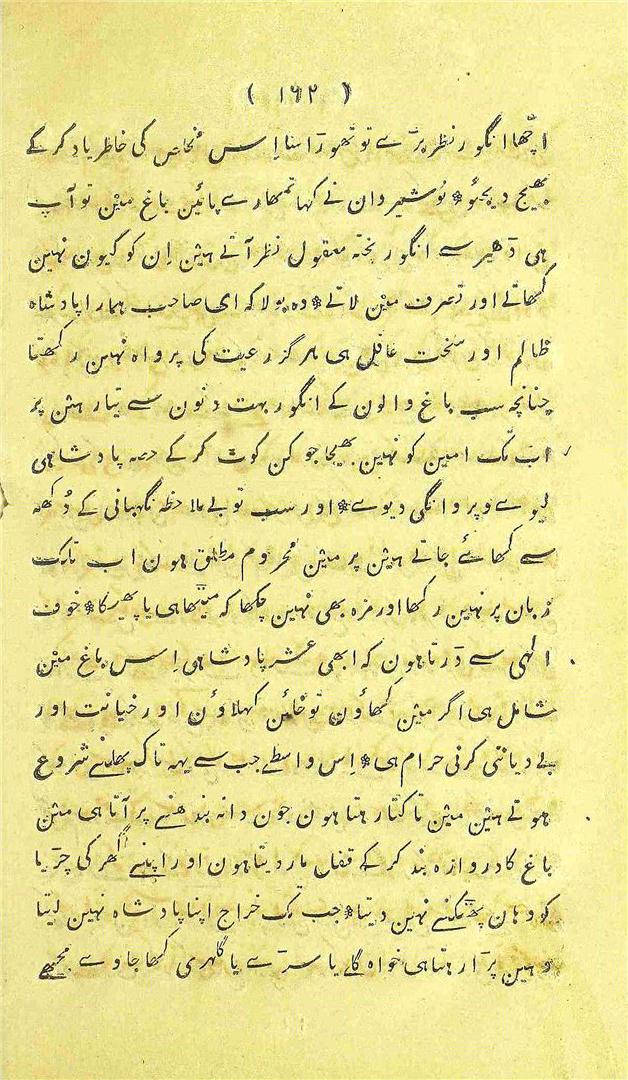 ( ۱۶۲ )
اچّھا انگور نظر پڑے تو تھوڑا سا اِس مُخاص کی خاطر یاد کر کے
بھیج دیجئو * نوشیروان نے کہا تمھارے پائین باغ مین تو آپ
ہی ڈھیر سے انگور پختہ معقول نظر آتے ہین اِن کو کیون نہین
کھاتے اور تصرف مین لاتے * وہ بولا کہ ای صاحب ہمارا پادشاہ
ظالم اور سخت غافل ہی ہرگز رعیت کی پرواہ نہین رکھتا
چنانچہ سب باغ والون کے انگور بہت دنون سے تیار ہین پر
اب تک امین کو نہین بھیجا جو کن کوت کر کے حصہ پادشاہی
لیوے و پروانگی دیوے * اور سب تو بے ملاحظہ نگہبانی کے دُکھ
سے کھائے جاتے ہین پر مین محروم مطلق ہون اب تک
زبان پر نہین رکھا اور مزہ بھی نہین چکھا کہ میٹھا ہی یا پھیکا * خوف
الٰہی سے ڈرتا ہون کہ ابھی عشر پادشاہی اِس باغ مین
شامل ہی اگر مین کھاؤن تو خائن کہلاؤن اور خیانت اور
بے دیانتی کرنی حرام ہی * اِس واسطے جب سے یہہ تاک پھلنے شروع
ہوتے ہین مین تاکتا رہتا ہون جون دانہ بندھنے پر آتا ہی مین
باغ کا دروازہ بند کر کے قفل مار دیتا ہون اور اپنے گھر کی چڑیا
کو وہان پھٹکنے نہین دیتا * جب تک خراج اپنا پادشاہ نہین لیتا
وہین پڑا رہتا ہی خواہ گلے یا سڑے یا گلہری کھا جاوے مجھے